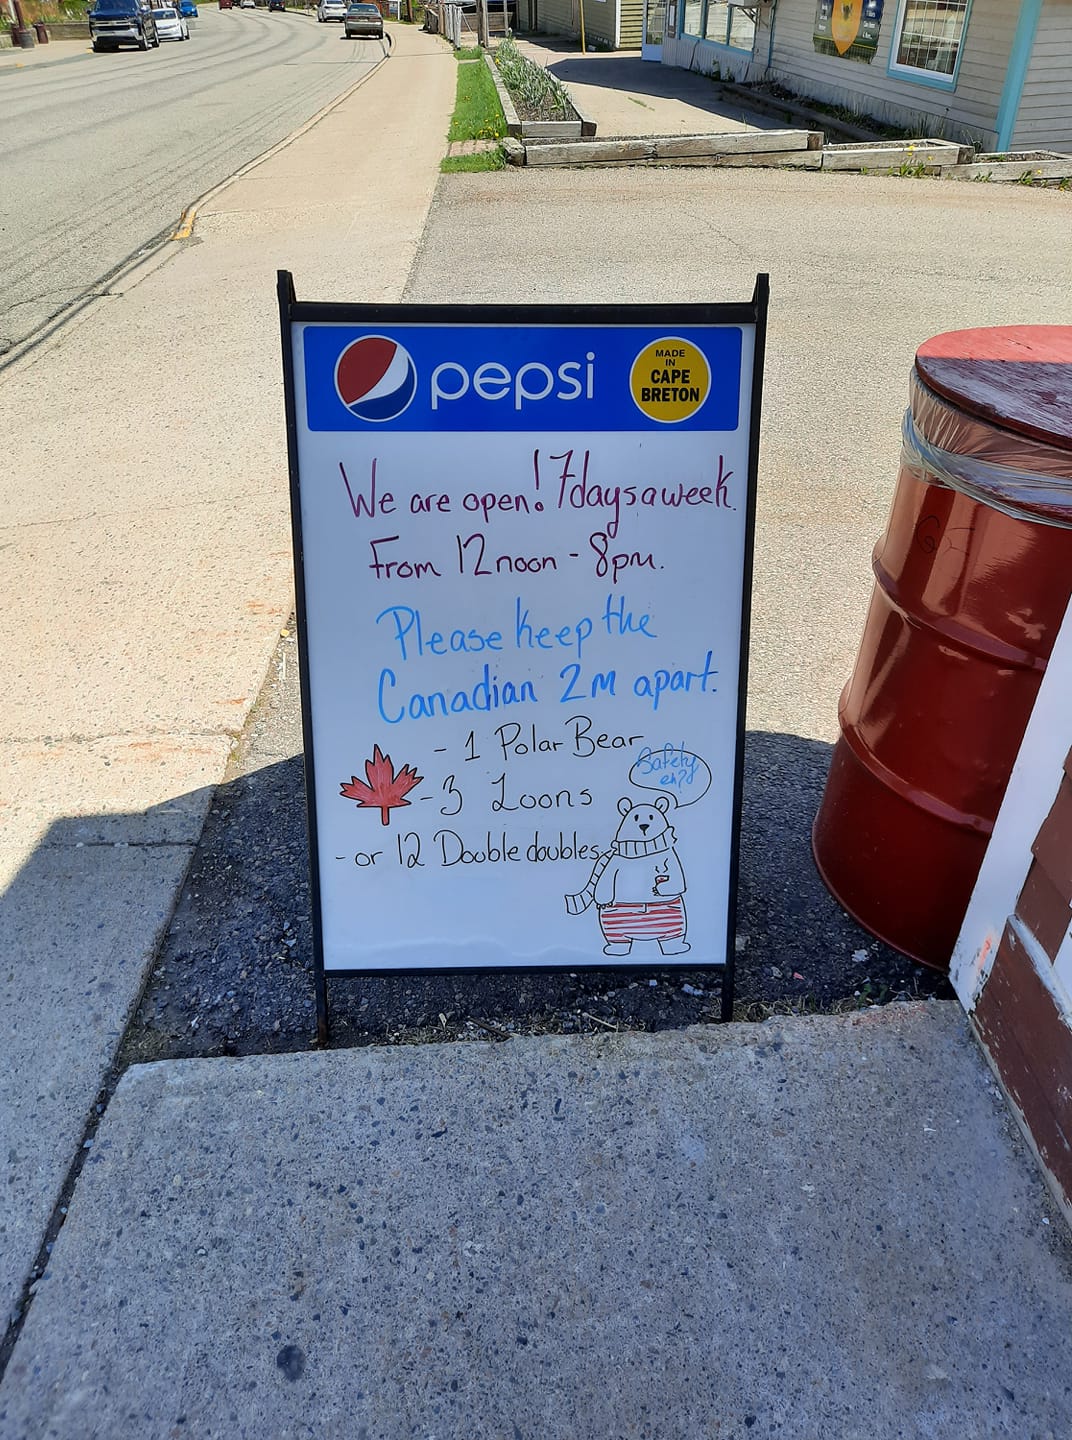 pepsi
MADE
IN
CAPE
BRETON
We are open! 7 days a week.
From 12 noon - 8pm.
Please keep the
Canadian 2m apart.
- 1 Polar Bear
- 3 Loons
- or 12 Double doubles
Safety
eh?